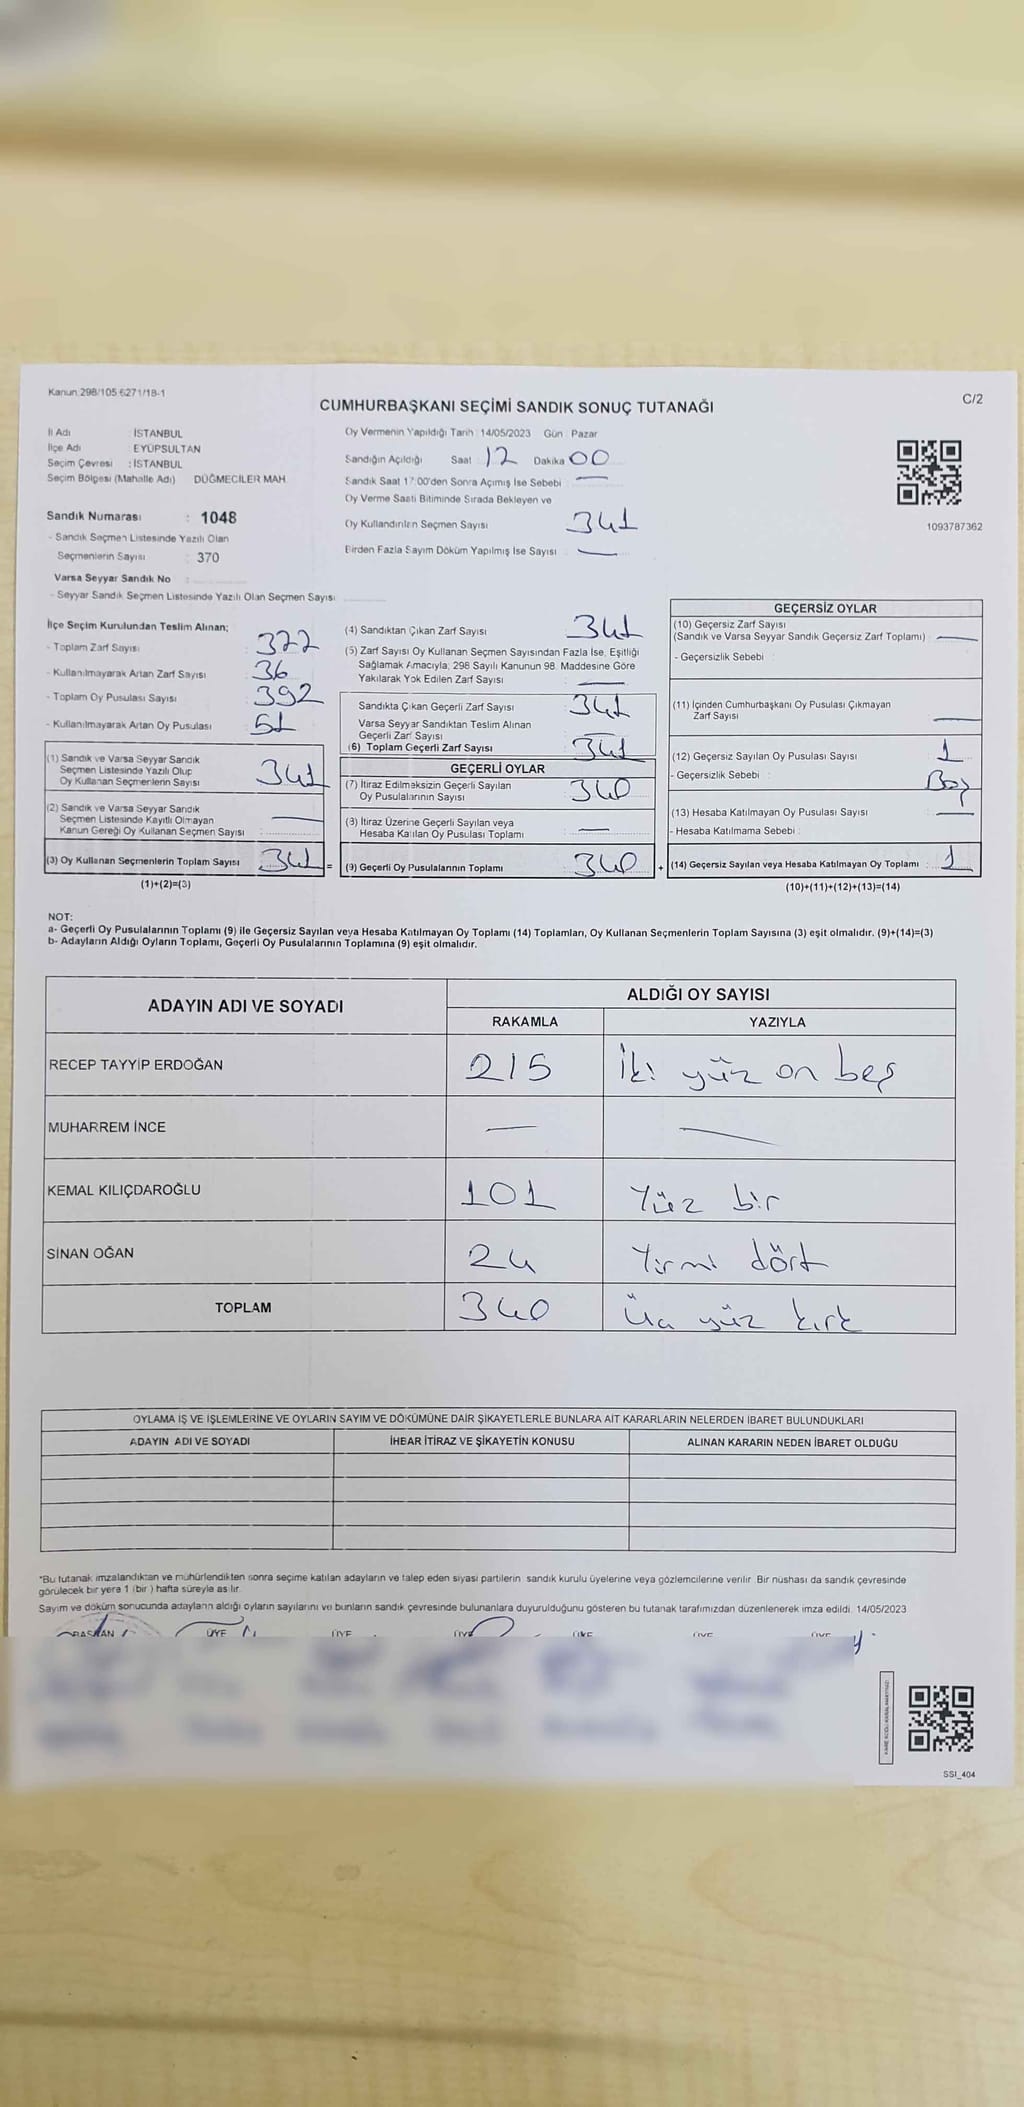 Kanun 298/105 6271/18-1
C/2
CUMHURBAŞKANI SEÇİMİ SANDIK SONUÇ TUTANAĞI
İl Adı : İSTANBUL
İlçe Adı : EYÜPSULTAN
Seçim Çevresi : İSTANBUL
Seçim Bölgesi (Mahalle Adı) DÜĞMECİLER MAH.
Sandık Numarası : 1048
- Sandık Seçmen Listesinde Yazılı Olan
Seçmenlerin Sayısı : 370
Varsa Seyyar Sandık No :
- Seyyar Sandık Seçmen Listesinde Yazılı Olan Seçmen Sayısı
Oy Vermenin Yapıldığı Tarih : 14/05/2023 Gün : Pazar
Sandığın Açıldığı Saat 12 Dakika 00
Sandık Saat 17:00'den Sonra Açımış İse Sebebi : —
Oy Verme Saati Bitiminde Sırada Bekleyen ve
Oy Kullandırılan Seçmen Sayısı : 341
Birden Fazla Sayım Döküm Yapılmış İse Sayısı : —
1093787362
İlçe Seçim Kurulundan Teslim Alınan;
- Toplam Zarf Sayısı : 377
- Kullanılmayarak Artan Zarf Sayısı : 36
- Toplam Oy Pusulası Sayısı : 392
- Kullanılmayarak Artan Oy Pusulası : 51
(1) Sandık ve Varsa Seyyar Sandık
Seçmen Listesinde Yazılı Olup
Oy Kullanan Seçmenlerin Sayısı 341
(2) Sandık ve Varsa Seyyar Sandık
Seçmen Listesinde Kayıtlı Olmayan
Kanun Gereği Oy Kullanan Seçmen Sayısı : —
(3) Oy Kullanan Seçmenlerin Toplam Sayısı 341 =
(1)+(2)=(3)
(4) Sandıktan Çıkan Zarf Sayısı : 341
(5) Zarf Sayısı Oy Kullanan Seçmen Sayısından Fazla İse, Eşitliği
Sağlamak Amacıyla; 298 Sayılı Kanunun 98. Maddesine Göre
Yakılarak Yok Edilen Zarf Sayısı : —
Sandıkta Çıkan Geçerli Zarf Sayısı : 341
Varsa Seyyar Sandıktan Teslim Alınan
Geçerli Zarf Sayısı : —
(6) Toplam Geçerli Zarf Sayısı : 341
GEÇERLİ OYLAR
(7) İtiraz Edilmeksizin Geçerli Sayılan
Oy Pusulalarının Sayısı : 340
(8) İtiraz Üzerine Geçerli Sayılan veya
Hesaba Katılan Oy Pusulası Toplamı : —
(9) Geçerli Oy Pusulalarının Toplamı : 340 +
GEÇERSİZ OYLAR
(10) Geçersiz Zarf Sayısı
(Sandık ve Varsa Seyyar Sandık Geçersiz Zarf Toplamı) : —
- Geçersizlik Sebebi :
(11) İçinden Cumhurbaşkanı Oy Pusulası Çıkmayan
Zarf Sayısı : —
(12) Geçersiz Sayılan Oy Pusulası Sayısı : 1
- Geçersizlik Sebebi : Boş
(13) Hesaba Katılmayan Oy Pusulası Sayısı : —
- Hesaba Katılmama Sebebi :
(14) Geçersiz Sayılan veya Hesaba Katılmayan Oy Toplamı : 1
(10)+(11)+(12)+(13)=(14)
NOT:
a- Geçerli Oy Pusulalarının Toplamı (9) ile Geçersiz Sayılan veya Hesaba Katılmayan Oy Toplamı (14) Toplamları, Oy Kullanan Seçmenlerin Toplam Sayısına (3) eşit olmalıdır. (9)+(14)=(3)
b- Adayların Aldığı Oyların Toplamı, Geçerli Oy Pusulalarının Toplamına (9) eşit olmalıdır.
ADAYIN ADI VE SOYADI ALDIĞI OY SAYISI
RAKAMLA YAZIYLA
RECEP TAYYİP ERDOĞAN 215 İki yüz on beş
MUHARREM İNCE — —
KEMAL KILIÇDAROĞLU 101 Yüz bir
SİNAN OĞAN 24 Yirmi dört
TOPLAM 340 Üç yüz kırk
OYLAMA İŞ VE İŞLEMLERİNE VE OYLARIN SAYIM VE DÖKÜMÜNE DAİR ŞİKAYETLERLE BUNLARA AİT KARARLARIN NELERDEN İBARET BULUNDUKLARI
ADAYIN ADI VE SOYADI İHBAR İTİRAZ VE ŞİKAYETİN KONUSU ALINAN KARARIN NEDEN İBARET OLDUĞU
*Bu tutanak imzalandıktan ve mühürlendikten sonra seçime katılan adayların ve talep eden siyasi partilerin sandık kurulu üyelerine veya gözlemcilerine verilir. Bir nüshası da sandık çevresinde
görülecek bir yere 1 (bir ) hafta süreyle asılır.
Sayım ve döküm sonucunda adayların aldığı oyların sayılarını ve bunların sandık çevresinde bulunanlara duyurulduğunu gösteren bu tutanak tarafımızdan düzenlenerek imza edildi. 14/05/2023
BAŞKAN ÜYE ÜYE ÜYE ÜYE ÜYE ÜYE
SSI_404